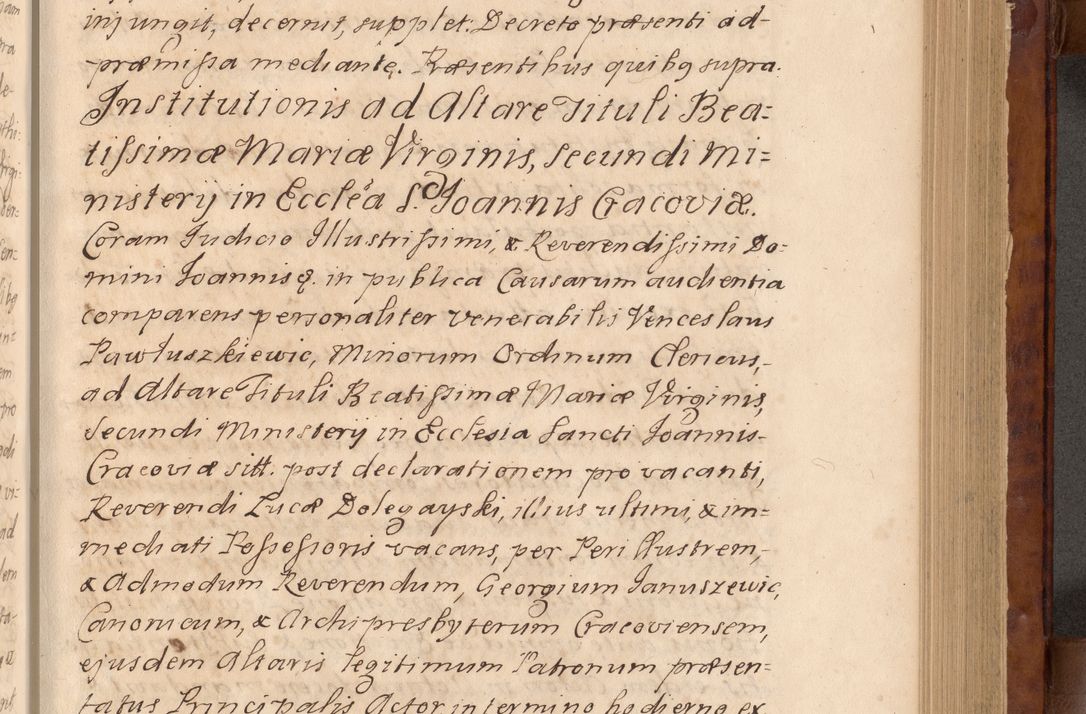 injungit, decernit, supplet. Decreto præsenti ad-
præmissa mediantę. Præsentibus quibꝫ supra.
Institutionis ad Altare Tituli Bea=
tissimæ Mariæ Virginis, Secundi Mi=
nisterij in Eccleä S. Joannis Cracoviæ.
Coram Judicio Illustrissimi, & Reverendissimi Do=
mini Joannis ę. in publica Causarum audientia
comparens personaliter venerabilis Venceslaus
Pawłuszkiewic, Minorum Ordinum Clericus,-
ad Altare Tituli Beatissimæ Mariæ Virginis,
Secundi Ministerij in Ecclesia Sancti Joannis-
Cracoviæ sitt. post declarationem pro vacanti,
Reverendi Lucæ Dolegayski, illius ultimi, & im=
mediati Possessoris vacans, per Perillustrem,-
& Admodum Reverendum, Georgium Januszewic,
Canonicum, & Archipresbyterum Cracoviensem,
ejusdem Altaris legitimum Patronum præsen=
tatus Principalis Actor in termino hodierno ex